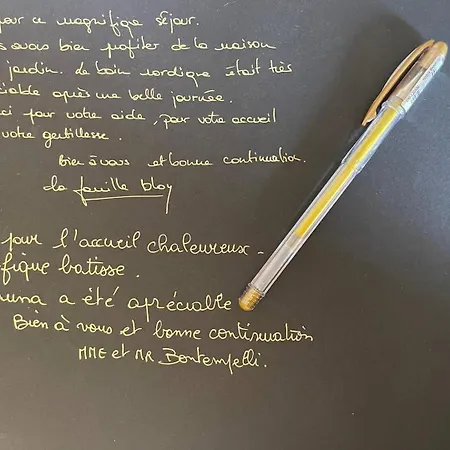 our ce magnifique séjour.
s avons bien profiter de la maison
jardin. Le bain nordique était très
ciable après une belle journée.
ci pour votre aide, pour votre accueil
votre gentillesse.
Bien à vous et bonne continuation.
la famille bloy
pour l'accueil chaleureux.
ifique batisse.
una a été apréciable
Bien à vous et bonne continuation
MME et MR. Bontempelli.